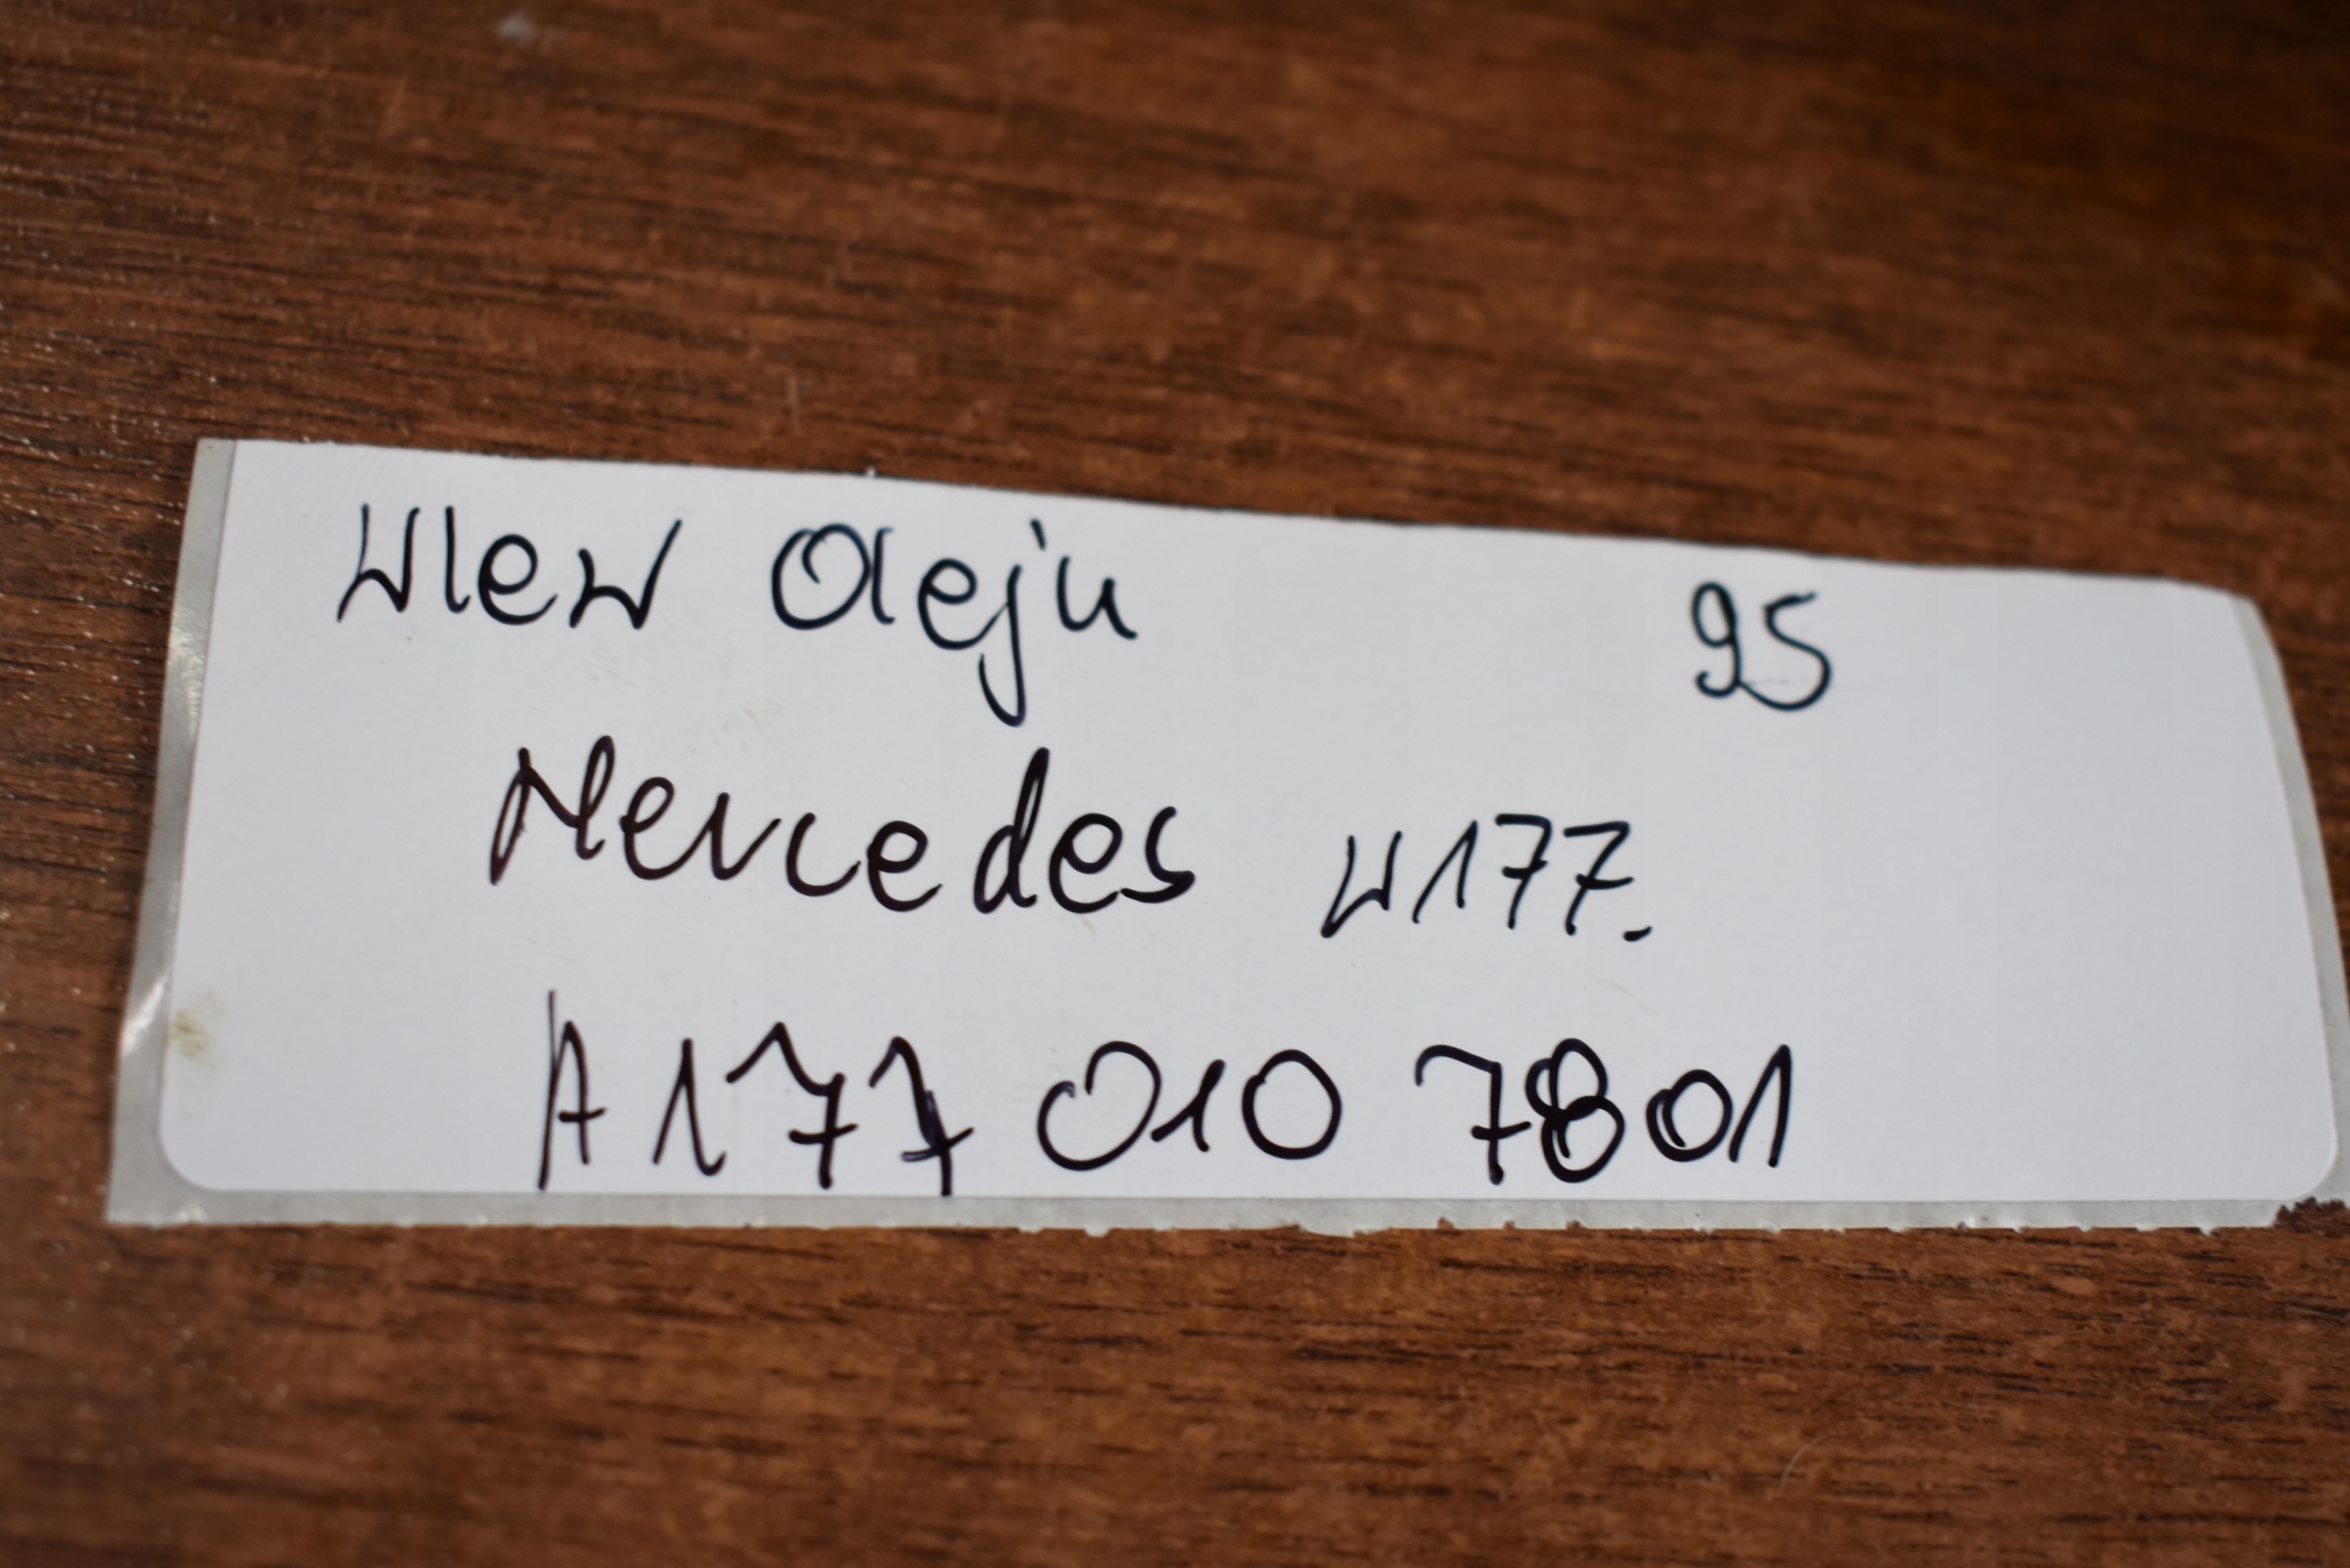 Wlew Oleju 95
Mercedes W177.
A177 010 7801